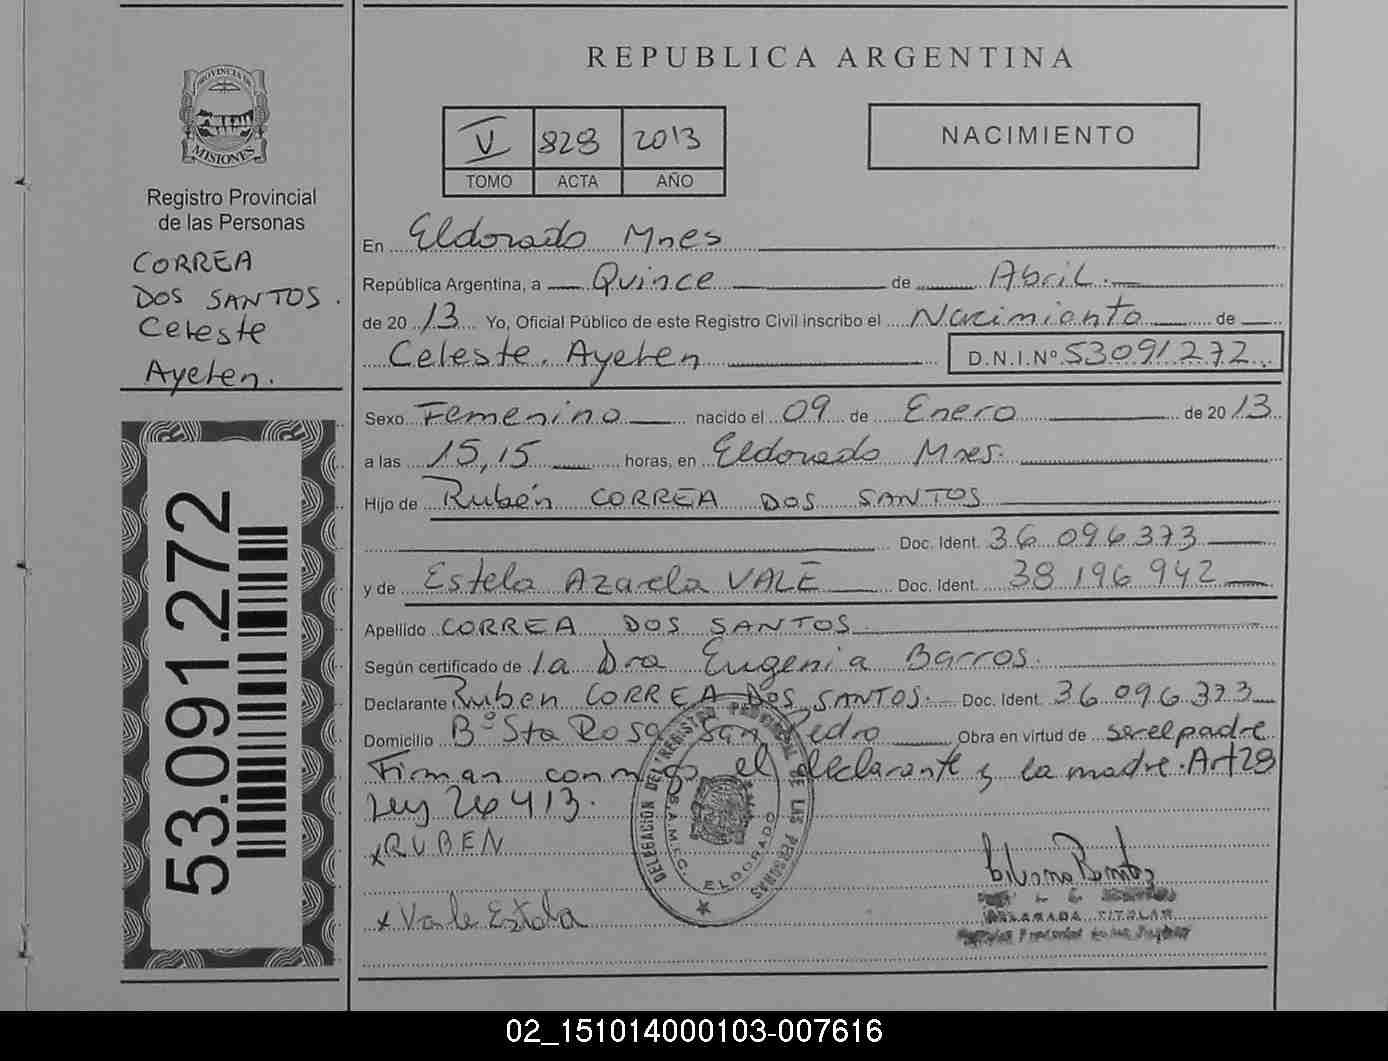 REPUBLICA ARGENTINA
PROVINCIA DE
MISIONES
Registro Provincial
de las Personas
CORREA
DOS SANTOS.
Celeste
Ayelen.
53.091.272
V 828 2013
TOMO ACTA AÑO
NACIMIENTO
En Eldorado Mnes
República Argentina, a Quince de Abril.
de 2013 Yo, Oficial Público de este Registro Civil inscribo el Nacimiento de
Celeste Ayelen D.N.I.Nº 53091272
Sexo Femenino nacido el 09 de Enero de 2013
a las 15,15 horas, en Eldorado Mnes.
Hijo de Rubén CORREA DOS SANTOS
Doc. Ident. 36 096 373
y de Estela Azarela VALE Doc. Ident. 38 196 942
Apellido CORREA DOS SANTOS
Según certificado de la Dra Eugenia Barros.
Declarante Ruben CORREA DOS SANTOS. Doc. Ident. 36 096 373
Domicilio Bº Sta Rosa San Pedro Obra en virtud de ser el padre
Firman conmigo el declarante y la madre. Art 28
Ley 26413.
x RUBEN
x Vale Estela
DELEGACIÓN DEL REGISTRO PROVINCIAL DE LAS PERSONAS
ELDORADO
DELEGADA TITULAR
02_151014000103-007616